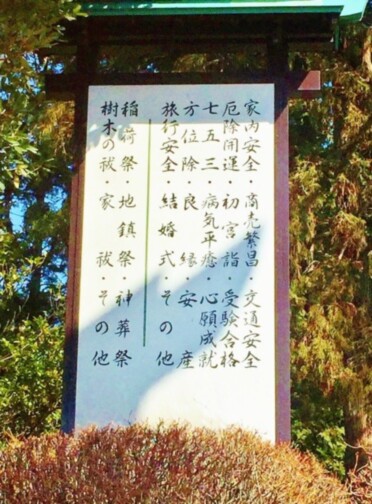 家内安全・商売繁昌・交通安全
厄除開運・初宮詣・受験合格
七五三・病気平癒・心願成就
方位除・良縁・安産
旅行安全・結婚式・その他
稲荷祭・地鎮祭・神葬祭
樹木の祓・家祓・その他